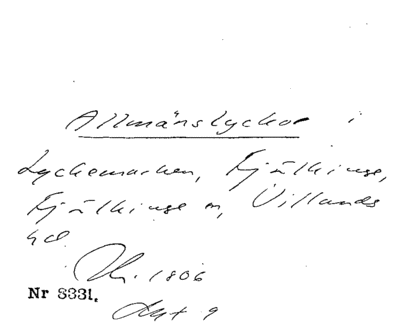 Allmänslyckor i
Lyckemarken, Fjälkinge,
Fjälkinge sn, Villands
hd.
1806
Nr 3331.
Akt 9